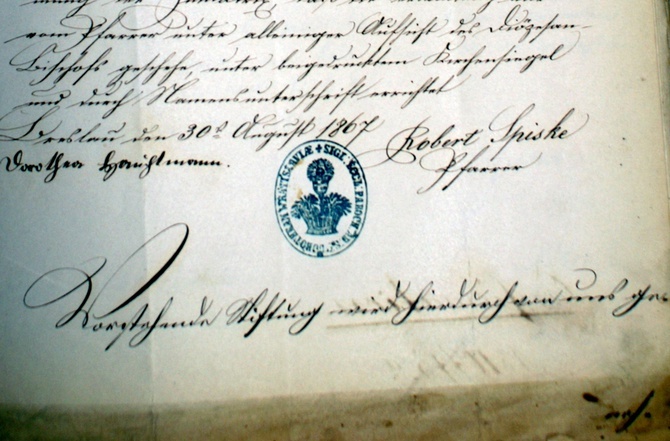 vom Pfarrer unter alleiniger Aufsicht des Diözesan-
Bischofs geschehe, unter beigedrucktem Kirchensiegel
und durch Namensunterschrift errichtet
Breslau den 30t August 1867
Robert Spiske
Pfarrer
Dorothea Hauptmann.
SIGL. ECCL. PAROCH. AD S. DOROTHEAM WRATISLAVIÆ
Vorstehende Stiftung wird hierdurch von uns ge-